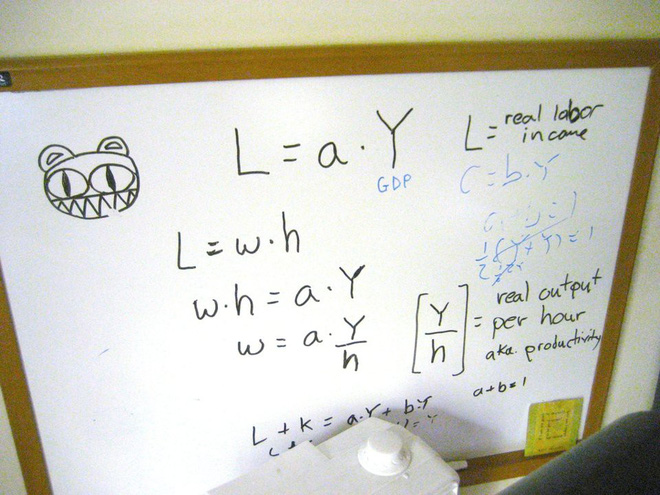 L = a · Y
GDP
L = real labor
income
C = b · Y
L = w · h
w · h = a · Y
w = a · Y/h
[Y/h] = real output
per hour
aka. productivity
a + b = 1
L + K = a·Y + b·Y